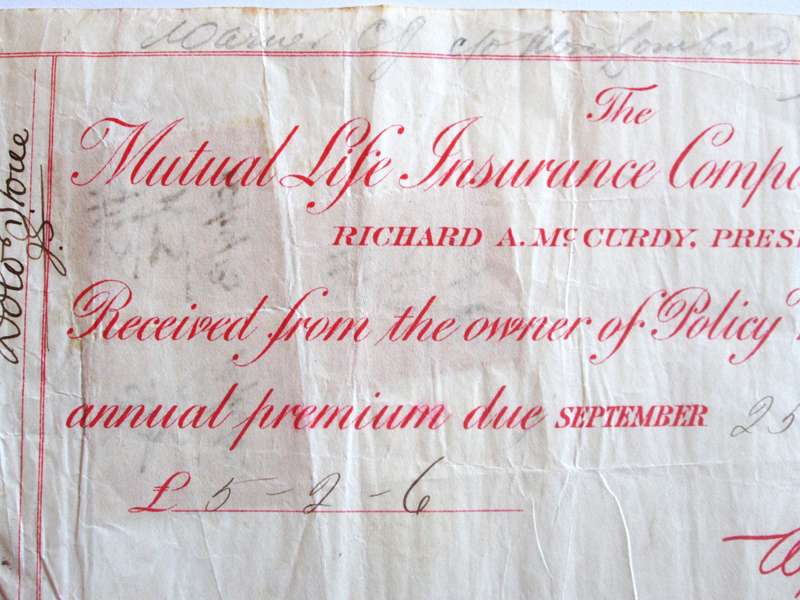 The
Mutual Life Insurance Compa
RICHARD A. McCURDY, PRESI
Received from the owner of Policy
annual premium due SEPTEMBER 25
£ 5-2-6